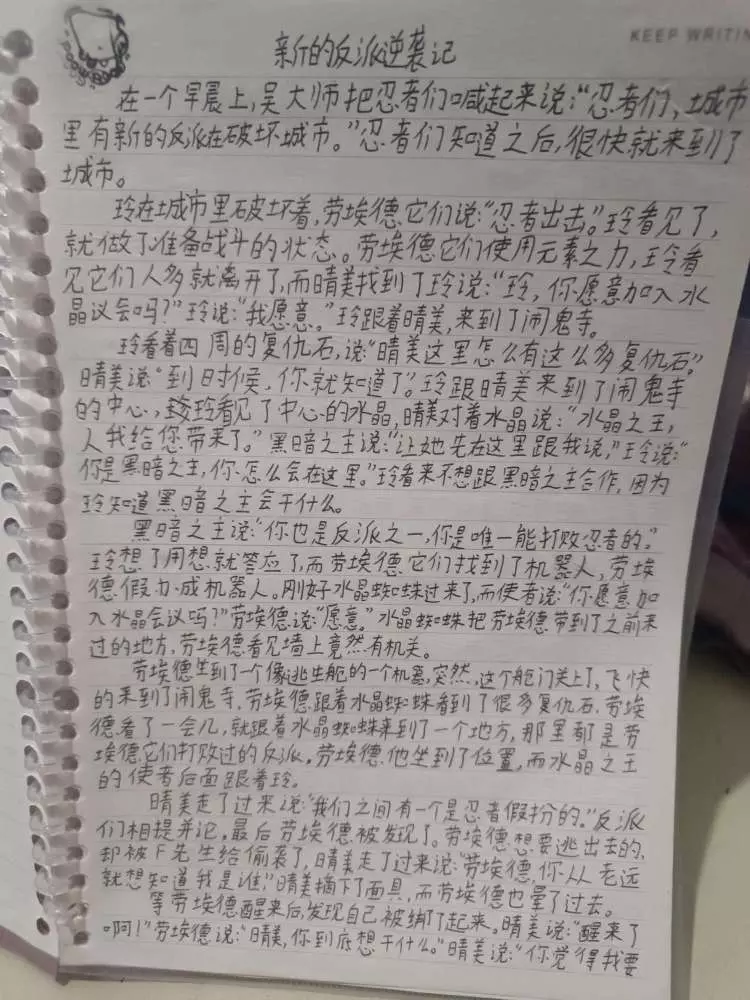 KEEP WRITIN
新的反派逆袭记
在一个早晨上,吴大师把忍者们喊起来说:“忍者们,城市
里有新的反派在破坏城市。”忍者们知道之后,很快就来到了
城市。
玲在城市里破坏着,劳埃德它们说:“忍者出击。”玲看见了,
就做了准备战斗的状态。劳埃德它们使用元素之力,玲看
见它们人多就离开了,而晴美找到了玲说:“玲,你愿意加入水
晶议会吗?”玲说:“我愿意。”玲跟着晴美,来到了闹鬼寺。
玲看着四周的复仇石,说:“晴美这里怎么有这么多复仇石。”
晴美说:“到时候,你就知道了”。玲跟晴美来到了闹鬼寺
的中心,玲看见了中心的水晶,晴美对着水晶说:“水晶之王,
人我给您带来了。”黑暗之主说:“让她先在这里跟我说,”玲说:“
你是黑暗之主,你怎么会在这里。”玲看来不想跟黑暗之主合作,因为
玲知道黑暗之主会干什么。
黑暗之主说:“你也是反派之一,你是唯一能打败忍者的。”
玲想了用想就答应了,而劳埃德它们找到了机器人,劳埃
德假办成机器人。刚好水晶蜘蛛过来了,而使者说:“你愿意加
入水晶会议吗?”劳埃德说:“愿意”水晶蜘蛛把劳埃德带到了之前来
过的地方,劳埃德看见墙上竟然有机关。
劳埃德坐到了一个像逃生舱的一个机器,突然,这个舱门关上了,飞快
的来到了闹鬼寺,劳埃德跟着水晶蜘蛛看到了很多复仇石,劳埃
德看了一会儿,就跟着水晶蜘蛛来到了一个地方,那里都是劳
埃德它们打败过的反派。劳埃德他坐到了位置,而水晶之王
的使者后面跟着玲。
晴美走了过来说:“我们之间有一个是忍者假扮的。”反派
们相提并论,最后劳埃德被发现了。劳埃德想要逃出去的,
却被F先生给偷袭了,晴美走了过来说:“劳埃德,你从老远
就想知道我是谁,”晴美摘下了面具,而劳埃德也晕了过去。
等劳埃德醒来后,发现自己被绑了起来。晴美说:“醒来了
啊!”劳埃德说:“晴美,你到底想干什么。”晴美说:“你觉得我要